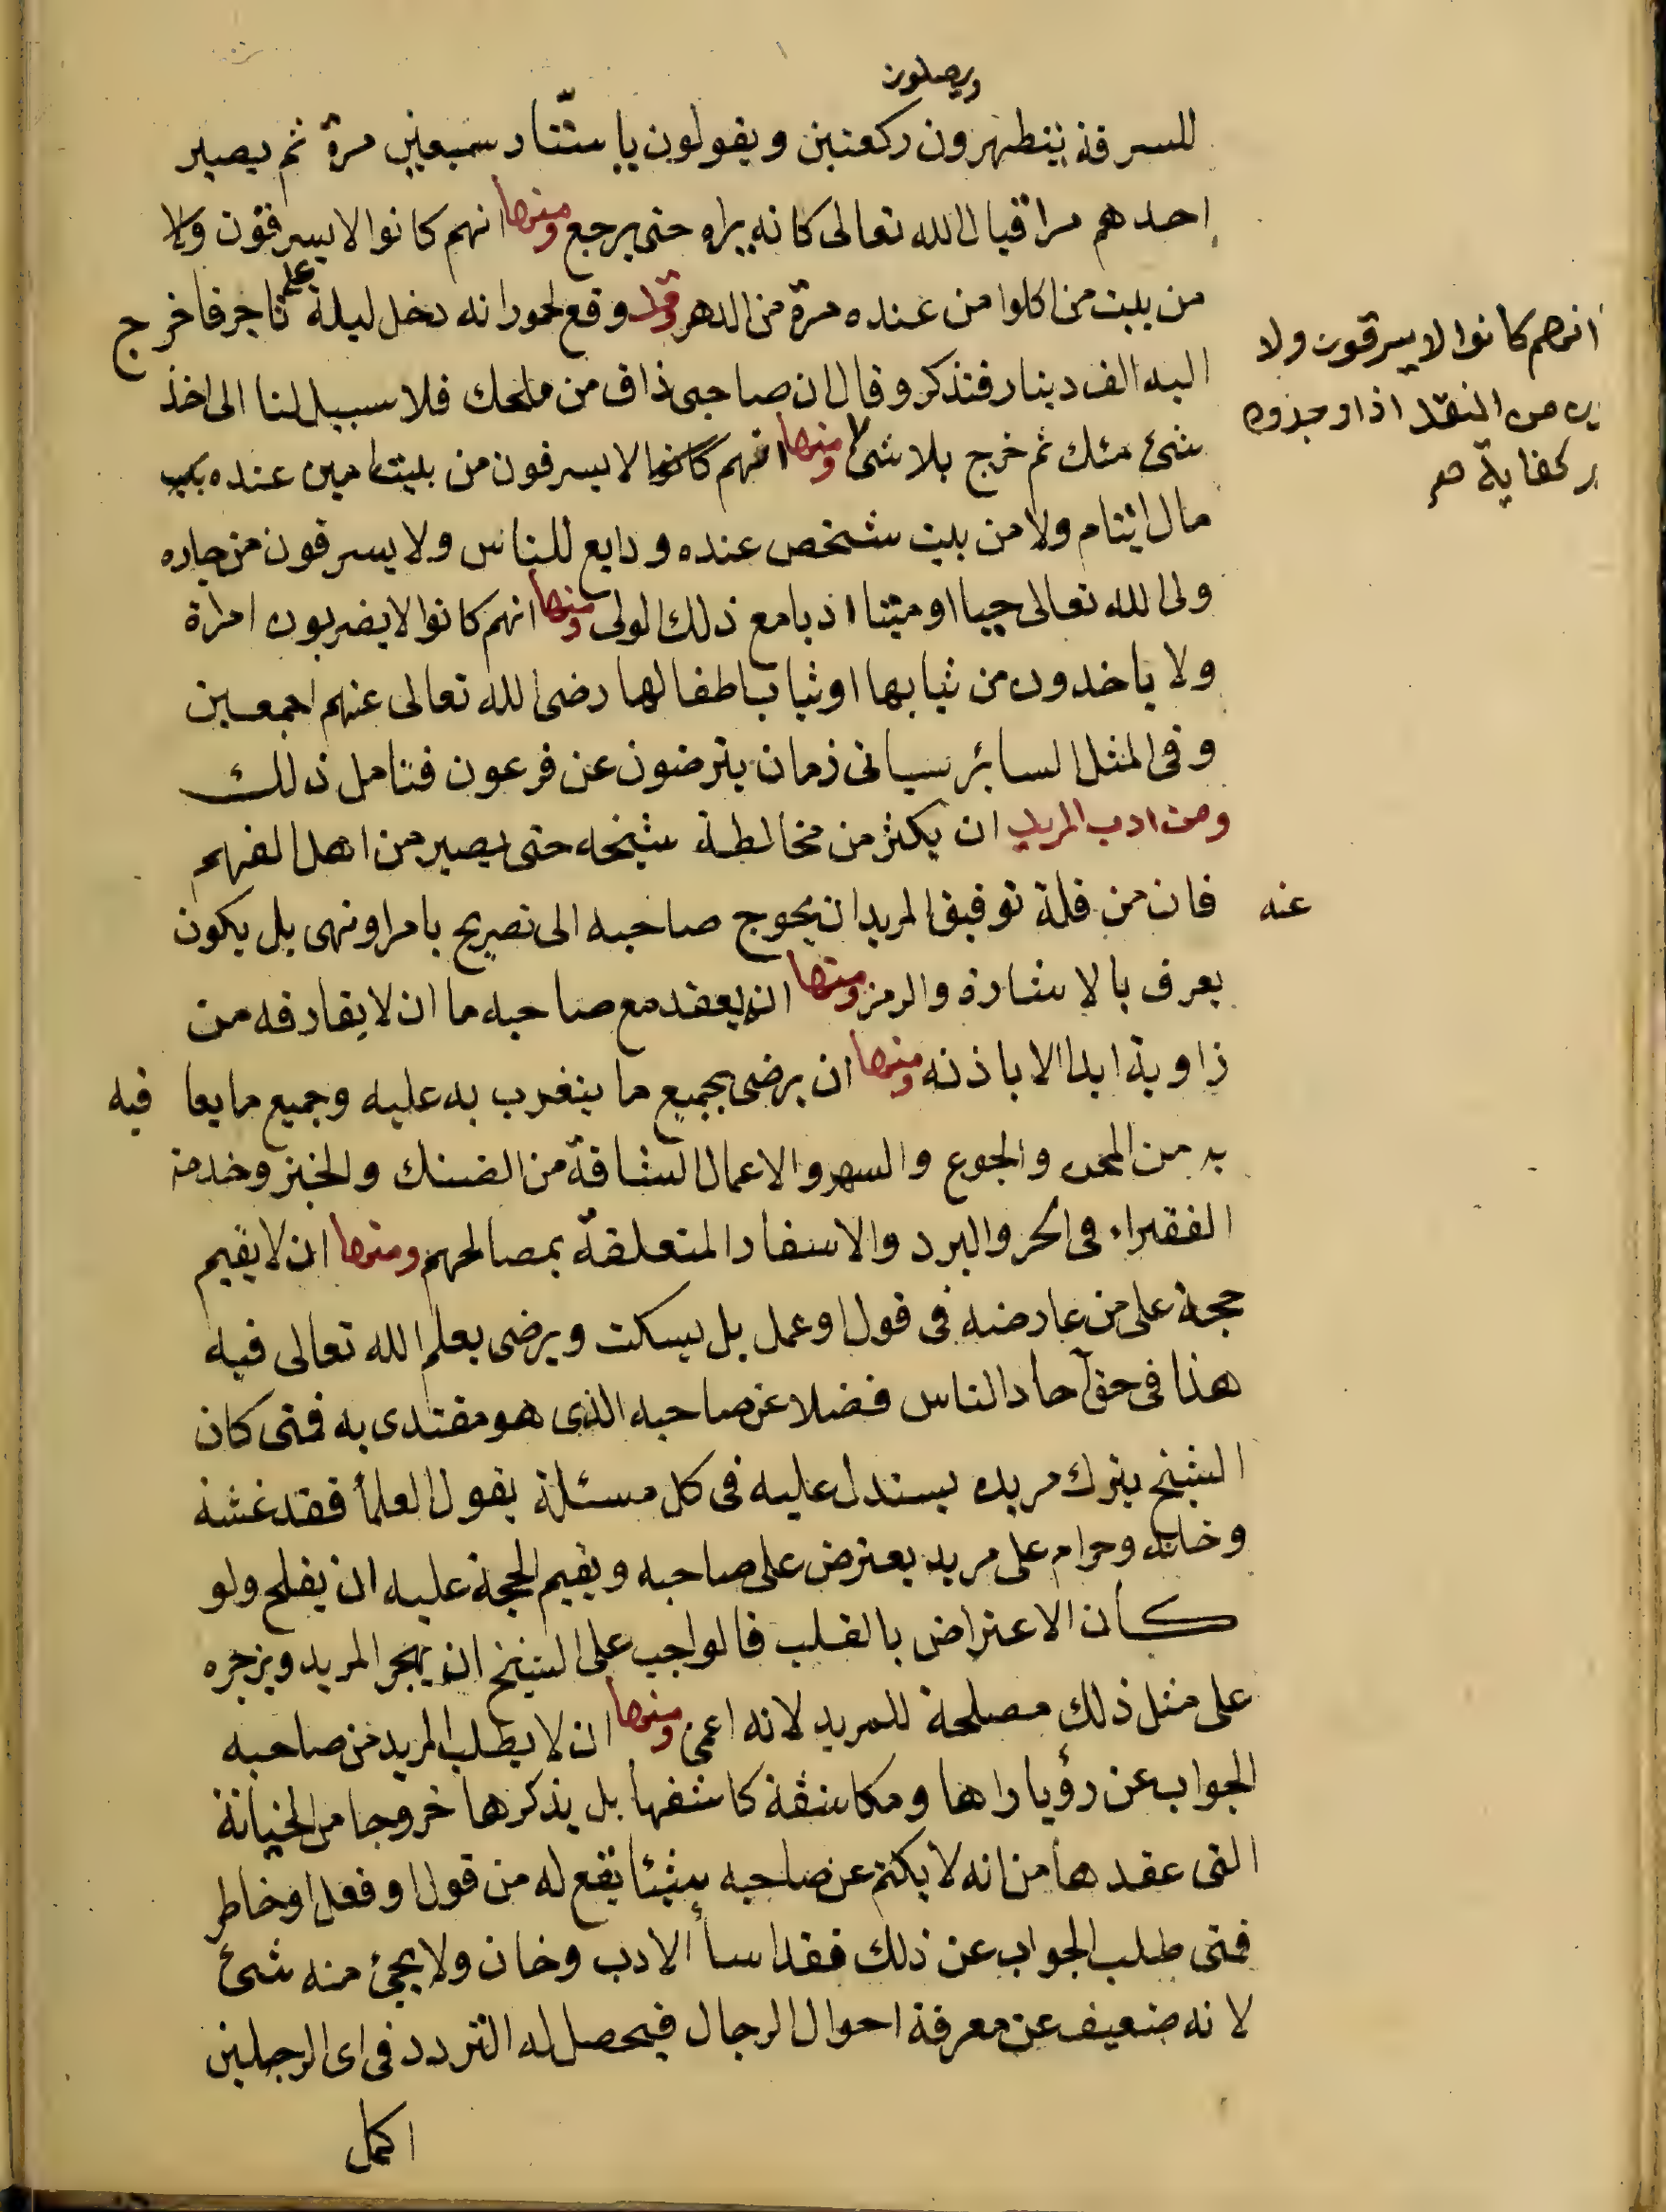 ويصلون
للسرقة يتطهرون ركعتين ويقولون يا ستّار سبعين مرة ثم يصير
احدهم مراقبا لله تعالى كانه يراه حتى يرجع ومنها انهم كانوا لا يسرقون ولا
من بيت من اكلوا من عنده مرة من الدهر وقد وقع لحمور انه دخل ليلة على تاجر فاخرج
اليه الف دينار فتذكر وقال ان صاحبى ذاق من ملحك فلا سبيل لنا الى اخذ
شئ منك ثم خرج بلا شئ ومنها انهم كانوا لا يسرقون من بيت امين عنده
مال ايتام ولا من بيت شخص عنده ودايع للناس ولا يسرقون من جاره
ولى لله تعالى حيا او ميتا ادبا مع ذلك لولى ومنها انهم كانوا لا يضربون امراة
ولا ياخدون من ثيابها او ثياب اطفالها رضى الله تعالى عنهم اجمعين
وفى المثل السائر سياتى زمان يترضون عن فرعون فتامل ذلك
ومن ادب المريد ان يكثر من مخالطة شيخه حتى يصير من اهل الفهم
عنه فان من قلة توفيق المريد ان يحوج صاحبه الى تصريح بامر او نهى بل يكون
يعرف بالاشارة والرمز ومنها ان يعقد مع صاحبه ما ان لا يفارقه من
زاوية ابدا الا باذنه ومنها ان يرضى بجميع ما يتغرب به عليه وجميع ما يعا فيه
به من المحن والجوع والسهر والاعمال الشاقة من الضنك والخبز وخدمة
الفقراء فى الحر والبرد والاسفار المتعلقة بمصالحهم ومنها ان لا يقيم
حجة على من عارضه فى قول او عمل بل يسكت ويرضى بعلم الله تعالى فيه
هذا فى حق آحاد الناس فضلا عن صاحبه الذى هو مقتدى به فمتى كان
الشيخ يترك مريده يستدل عليه فى كل مسئلة بقول العلمأ فقد غشه
وخانه وحرام على مريد يعترض على صاحبه ويقيم الحجة عليه ان يفلح ولو
كان الاعتراض بالقلب فالواجب على الشيخ ان يهجر المريد ويزجره
على مثل ذلك مصلحة للمريد لانه اعمى ومنها ان لا يطلب المريد من صاحبه
الجواب عن رؤيا راها ومكاشفة كاشفها بل يذكرها خروجا من الخيانة
التى عقدها من انه لا يكتم عن صاحبه شيئا يقع له من قول او فعل او خاطر
فمتى طلب الجواب عن ذلك فقد اسأ الادب وخان ولا يجئ منه شئ
لانه ضعيف عن معرفة احوال الرجال فيحصل له التردد فى اى الرجلين
اكمل
انهم كانوا لا يسرقون ولا
من النقد اذا وجدوه
كفاية صح